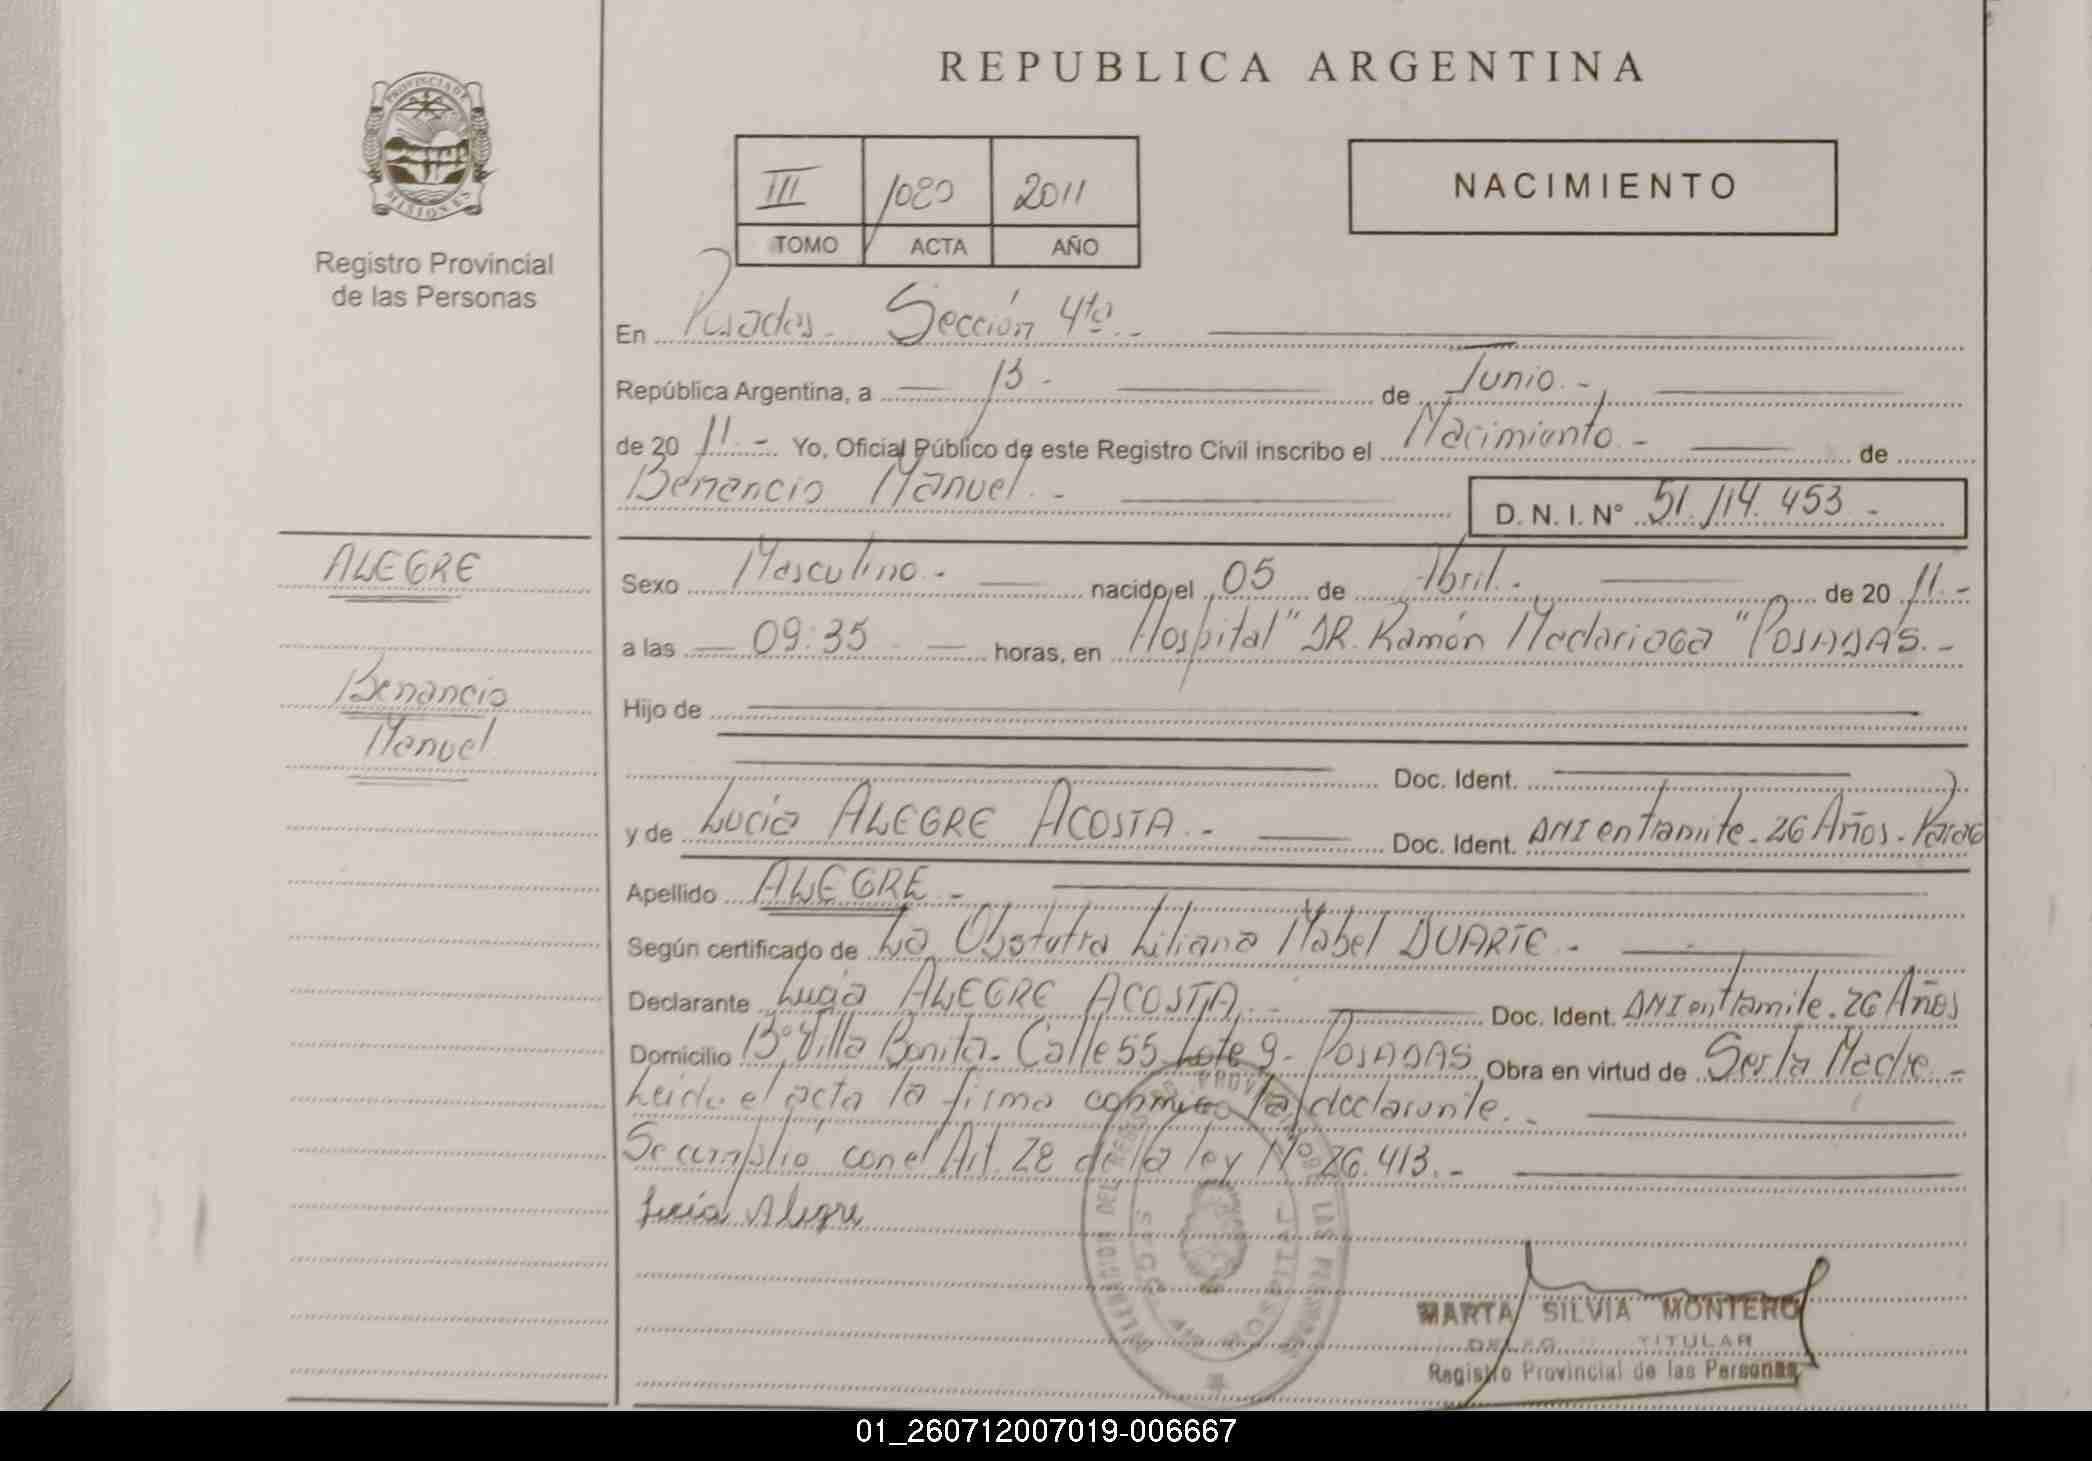 REPUBLICA ARGENTINA
PROVINCIA DE MISIONES
Registro Provincial
de las Personas
III 1080 2011
TOMO ACTA AÑO
NACIMIENTO
En Posadas. Sección 4ta.-
República Argentina, a 13- de Junio.-
de 20 11.- Yo, Oficial Público de este Registro Civil inscribo el Nacimiento.- de
Benancio Manuel.-
D. N. I. N° 51.114.453-
ALEGRE
Benancio
Manuel
Sexo Masculino.- nacido el 05 de Abril.- de 20 11.-
a las 09:35 horas, en Hospital "DR. Ramón Madariaga" POSADAS.-
Hijo de
Doc. Ident.
y de Lucia ALEGRE ACOSTA.- Doc. Ident. DNI en tramite. 26 Años.
Apellido ALEGRE-
Según certificado de La Obstetra Liliana Mabel DUARTE-
Declarante Lucia ALEGRE ACOSTA.- Doc. Ident. DNI en tramite. 26 Años
Domicilio B° Villa Bonita. Calle 55 Lote 9- POSADAS Obra en virtud de Ser la Madre.-
Leida el acta la firma conmigo la declarante.-
Se cumplió con el Art. 28 de la ley N° 26.413.-
Lucia Alegre
MARTA SILVIA MONTERO
TITULAR
Registro Provincial de las Personas
01_260712007019-006667